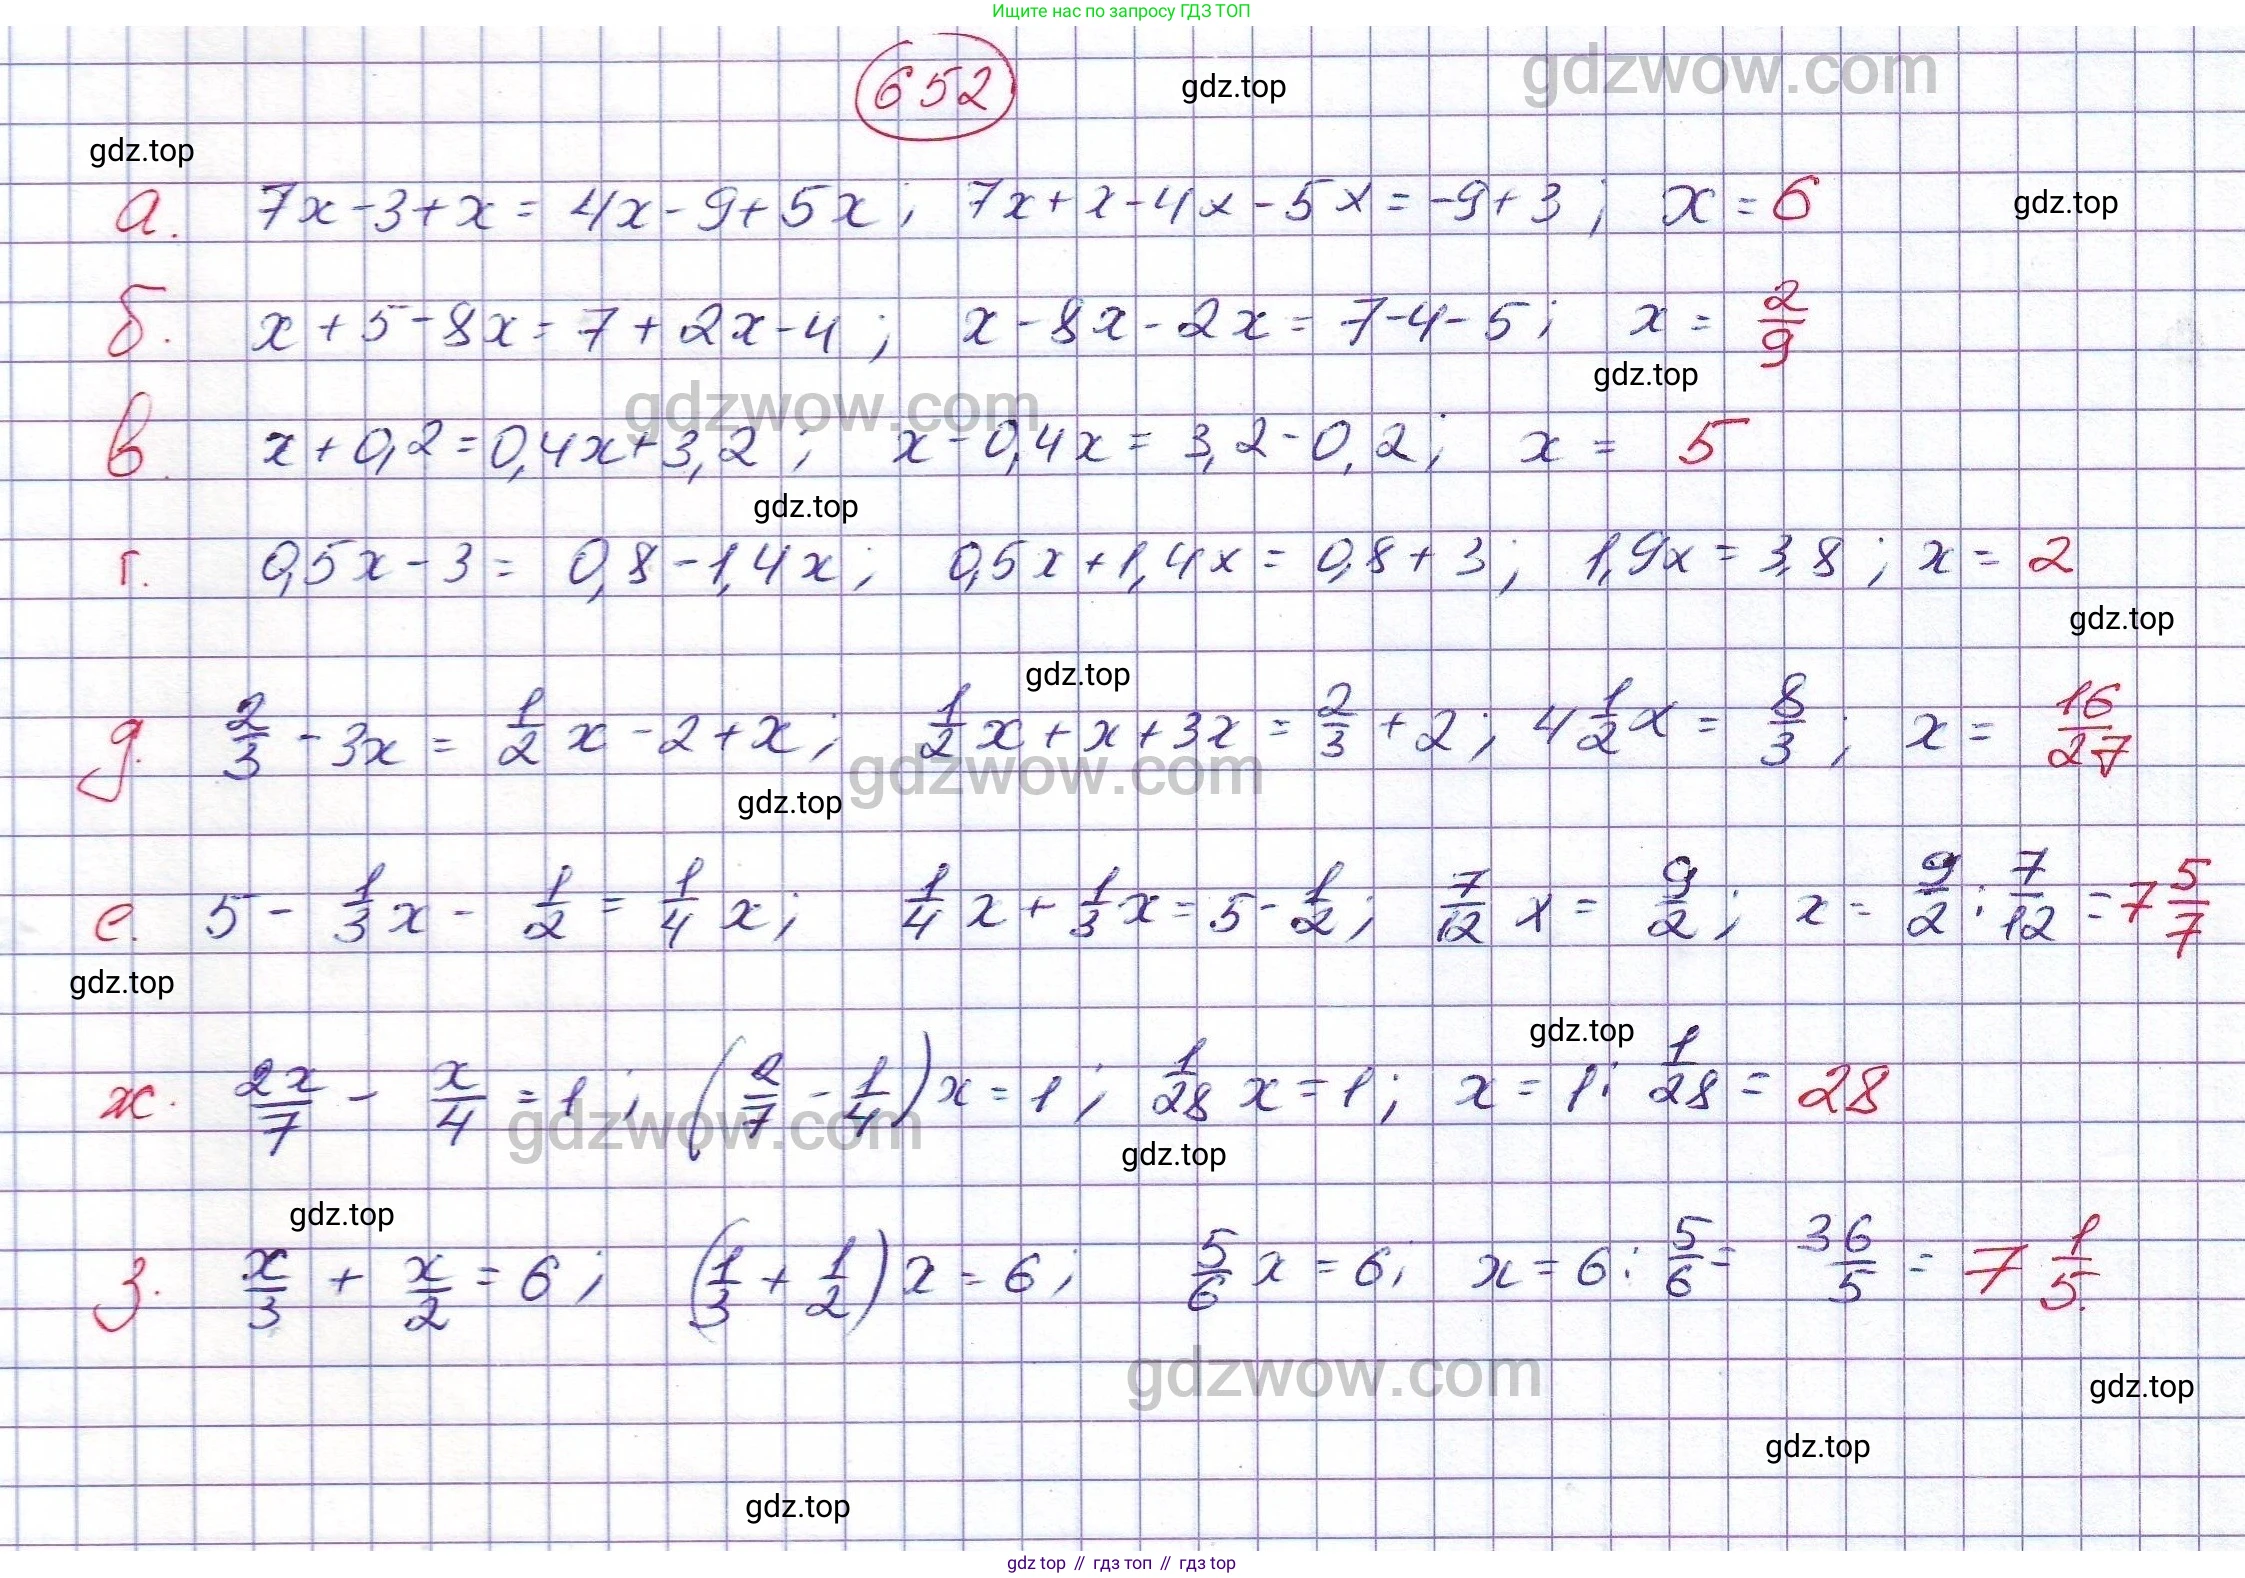 Ищите нас по запросу ГДЗ ТОП
652
gdz.top
gdzwow.com
gdz.top
а. 7x-3+x = 4x-9+5x; 7x+x-4x-5x = -9+3; x = 6
gdz.top
б. x+5-8x = 7+2x-4; x-8x-2x = 7-4-5; x = 2/9
gdz.top
gdzwow.com
в. x+0,2 = 0,4x+3,2; x-0,4x = 3,2-0,2; x = 5
gdz.top
г. 0,5x-3 = 0,8-1,4x; 0,5x+1,4x = 0,8+3; 1,9x = 3,8; x = 2
gdz.top
gdz.top
д. 2/3 - 3x = 1/2 x - 2 + x; 1/2 x + x + 3x = 2/3 + 2; 4 1/2 x = 8/3; x = 16/27
gdzwow.com
gdz.top
е. 5 - 1/3 x - 1/2 = 1/4 x; 1/4 x + 1/3 x = 5 - 1/2; 7/12 x = 9/2; x = 9/2 : 7/12 = 7 5/7
gdz.top
gdz.top
ж. 2x/7 - x/4 = 1; (2/7 - 1/4)x = 1; 1/28 x = 1; x = 1 : 1/28 = 28
gdzwow.com
gdz.top
gdz.top
з. x/3 + x/2 = 6; (1/3 + 1/2)x = 6; 5/6 x = 6; x = 6 : 5/6 = 36/5 = 7 1/5.
gdzwow.com
gdz.top
gdz.top
gdz.top
gdz top // гдз топ // гдз top